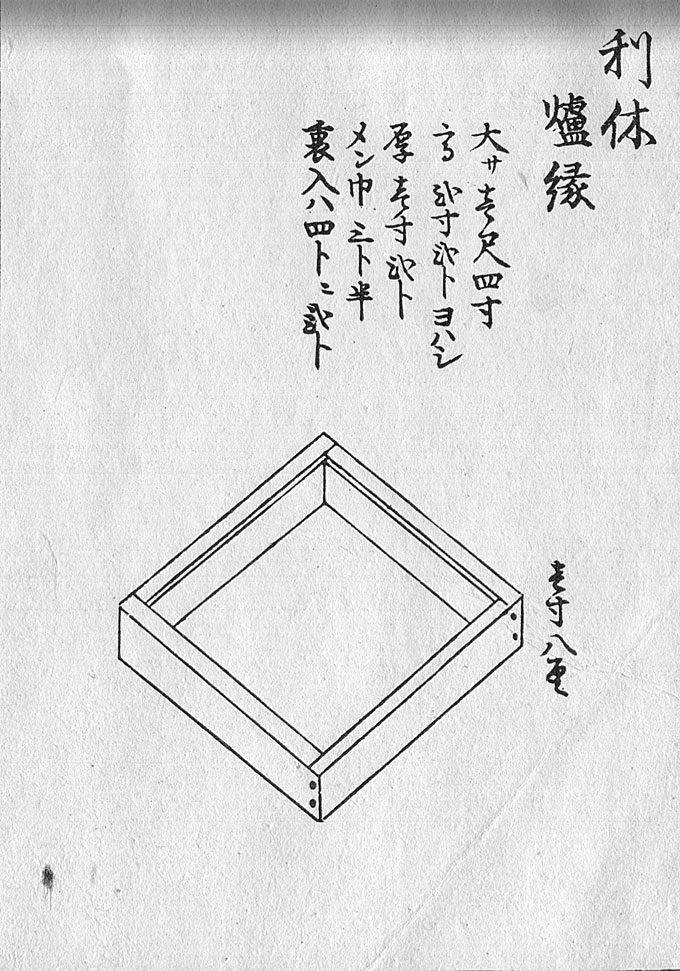 利休
爐縁
大サ壱尺四寸
高弐寸弐卜ヨハシ
厚壱寸弐卜
メン巾三卜半
裏入八四卜ニ弐卜
壱寸八